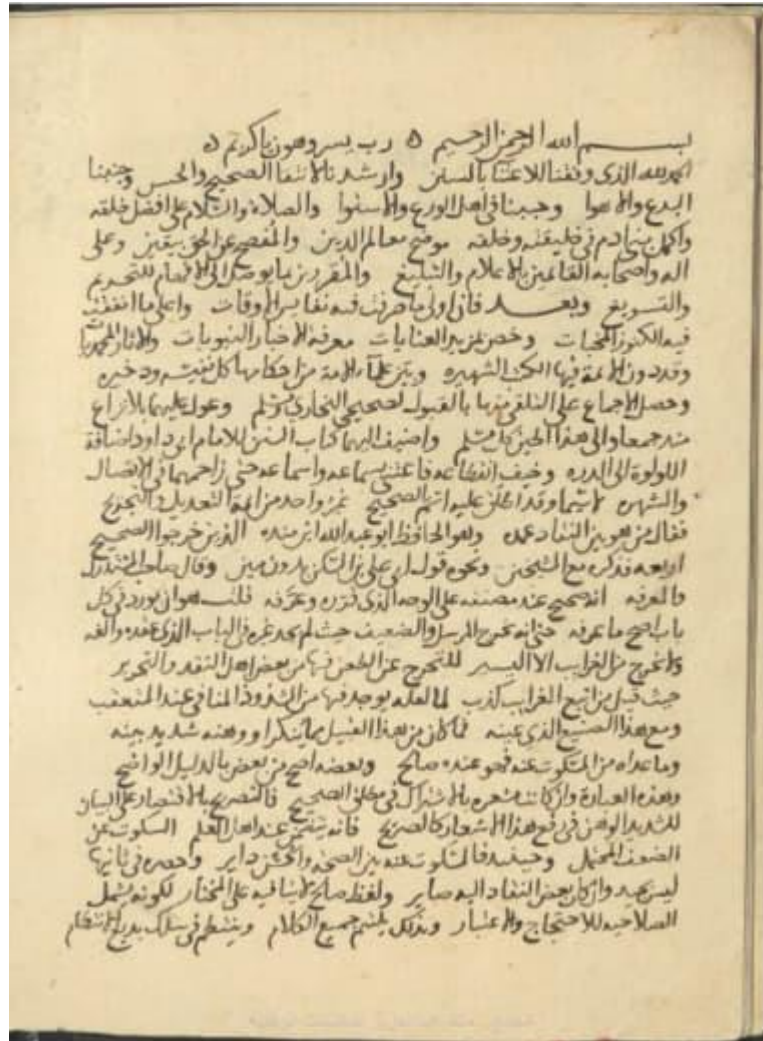 بسم الله الرحمن الرحيم ه رب يسر وهون ياكريم ه
الحمد لله الذى وفقنا للاعتنا بالسنن وارشدنا لانتقا الصحيح والحسن وجنبنا
البدع والاهوا وحببنا فى اهل الورع والاستوا والصلاة والسلام على افضل خلقه
واكمل بنى ادم فى خليقته وخلقه موضح معالم الدين والمفصح عن الحق بيقين وعلى
اله واصحابه القائمين بالاعلام والتبليغ والمقررين ما يوصل الى الافهام للتحريم
والتسويغ وبعد فان اولى ما صرفت فيه نفايس الاوقات واعلى ما انفقت
فيه الكنوز المخبات وخص بمزيد العنايات معرفة الاخبار النبويات والاثار المحمديات
وقد دون الائمة فيها الكتب الشهيره وبين علماء الامة من احكامها كل نفيسه ودخيره
وحصل الاجماع على التلقى منها بالقبول لصحيحى البخارى ومسلم وعول عليهما بلا نزاع
منذ جمعا والى هذا الحين كل مسلم واضيف اليهما كتاب السنن للامام ابى داود اضافة
اللولوة الى الدره وخيف انقطاعه فاعتنى بسماعه واسماعه حتى زاحمهما فى الاتصال
والشهره لاسيما وقد اطلق عليه اسم الصحيح غير واحد من ايمة التعديل والتجريح
فقال من هو بين النقاد عمده وهو الحافظ ابو عبد الله ابن منده الذين خرجوا الصحيح
اربعه فذكره مع الشيخين ونحوه قول ابى على بن السكن بدون مين وقال صاحب المستدرك
والمعرفه انه صحيح عند مصنفه على الوجه الذى قرره وعرفه قلت هو ان يورد فى كل
باب اصح ما عرفه حتى انه يخرج المرسل والضعيف حيث لم يجد غيره فى الباب الذى عقده والفه
ولا يخرج من الغرايب الا اليسير للتحرج عن الطعن فيها من بعض اهل النقد والتحرير
حيث قيل من اتبع الغرايب كذب لما لعله يوجد فيها من الشذوذ المنافى عند المتعقب
ومع هذا الصنيع الذى عينه فما كان من هذا القبيل مما يُنكر او وهنه شديد بينه
وما عداه من المسكوت عنه فهو عنده صالح وبعضه اصح من بعض بالدليل الواضح
وهذه العبارة وان كانت مشعره بالاشتراك فى مطلق الصحيح فالتصريح بالاقتصار على البيان
للشديد الوهن فى دفع هذا الاشعار كالصريح فانه يتضمن عند اهل العلم السكوت عن
الضعف المحتمل وحينئذ فالمسكوت عنه بين الصحة والحسن داير وحصره فى ثانيهما
ليس بجيد وان كان بعض النقاد اليه صاير ولفظ صالح لا ينافيه على المختار لكونه يشمل
الصلاحيه للاحتجاج والاعتبار وبذلك يلتئم جميع الكلام وينتظم فى سلك بديع الانتظام